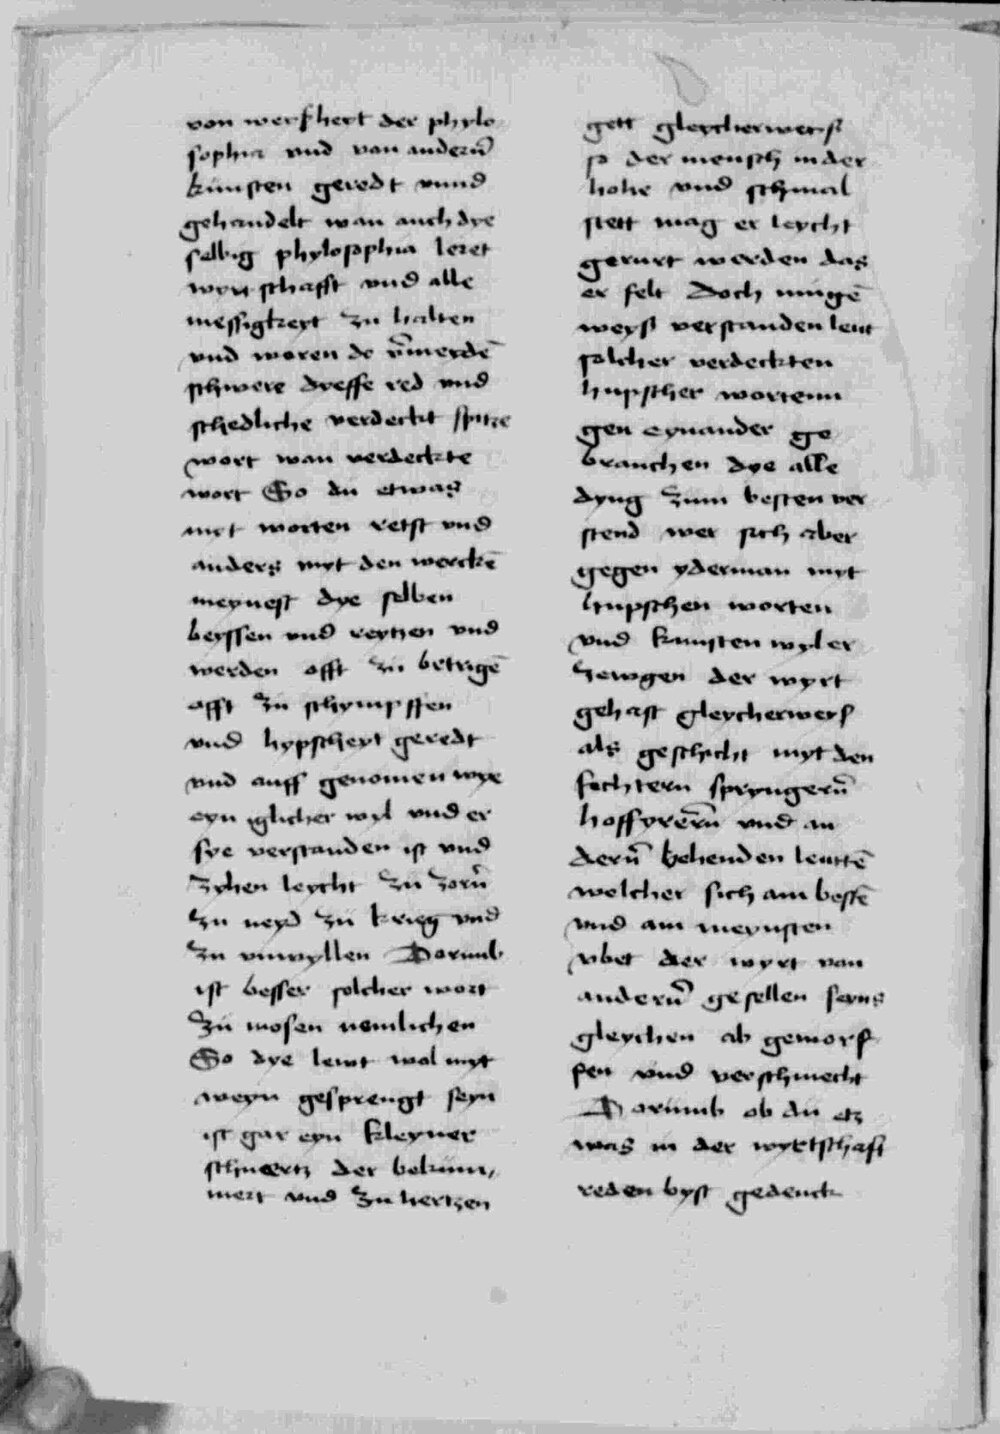 von weysheyt der phylo
sophia vnd von andern̄
kunsten geredt vnnd
gehandelt wan auch dye
selbig phylosophia leret
wyrtschafft vnd alle
messigkeyt zu halten
vnd woren do v̄merdē
schwere dyeffe red vnd
schedliche verdeckt spitze
wort wan verdeckte
wort So du etwas
mit worten retst vnd
anders myt den werckē
meynest dye selben
beyssen vnd reytzen vnd
werden offt zu betrigē
offt zu schympffen
vnd hypscheyt geredt
vnd auff genomen wye
eyn iglicher wyl vnd er
sye verstanden ist vnd
zyhen leycht zu zorn̄
zu neyd zu krieg vnd
zu vnwyllen Dorumb
ist besser solcher wort
zu mosen nemlichen
So dye lewt wol myt
weyn gesprengt seyn
ist gar eyn kleyner
schmertz der bekum,
mert vnd zu hertzen
gett gleycherweyß
so der mensch in der
hohe vnd schmal
stett mag er leycht
gerurt werden das
er felt Doch mugē
weyß verstanden leut
solcher verdeckten
hupscher wortenn
gen eynander ge
brauchen dye alle
dyng zum besten ver
stend wer sich aber
gegen yderman myt
hupschen worten
vnd kunsten wyl er
zewgen der wyrt
gehast gleycherweyß
als geschicht myt den
fechtern spryngern̄
hoffyrern̄ vnd an
dern̄ behenden leuttē
welcher sich am bestē
vnd am meynsten
vbet der wyrt von
andern̄ gesellen seyns
gleychen ab geworf
fen vnd verschmecht
Dorumb ob du etz
was in der wyrtschaft
reden byst gedenck